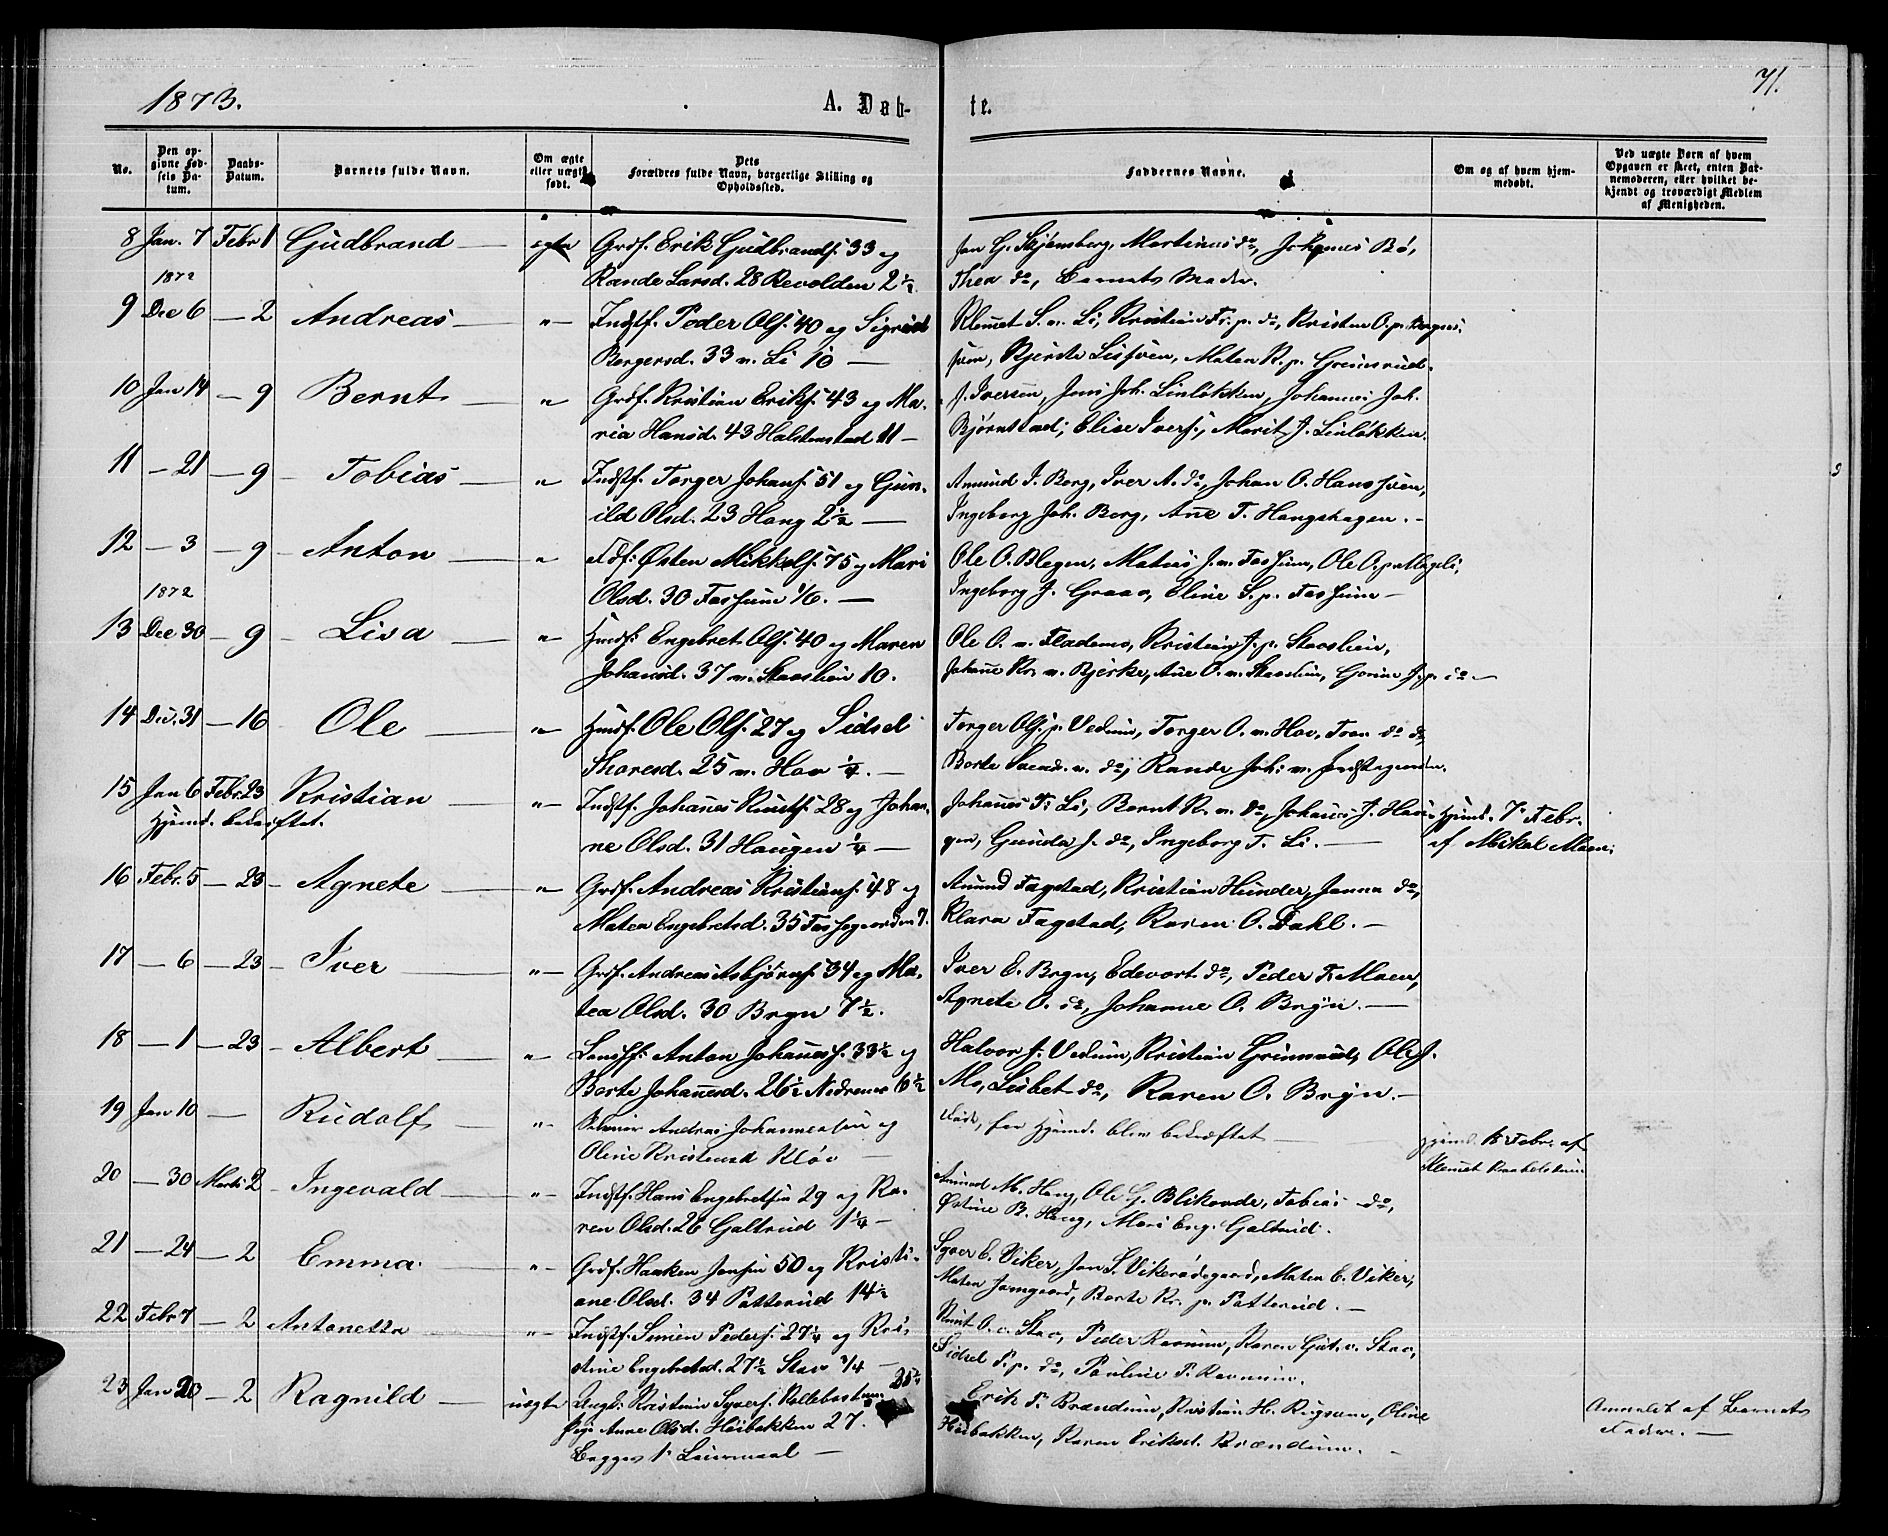 1873.
A. Døb-
te.
71.
No.
Den op-
givne Fød-
sels Da-
tum.
Daabs-
Datum.
Barnets fulde Navn.
Om ægte
eller uægte
født.
Dets
Forældres fulde Navn, borgerlige Stilling og
Opholdssted.
Faddernes Navne.
Om og af hvem hjem-
medøbt.
Ved uægte Børn af hvem
Opgaven er skeet, enten Bar-
nemoderen, eller hvilket be-
kjendt og troværdigt Medlem
af Menigheden.
8 Jan. 7 Febr 1 Gudbrand ægte Grdf. Erik Gudbrandf. 33 og
Rande Larsd. 28 Revolden 2½
Jan G. Skjønsberg, Martinus do, Johannes Bø,
Thea do, Barnets Moder.
1872
9 Dec 6 — 2 Andreas — " — Indstf. Peder Olf. 40 og Sigrid
Borgersd. 33 v. Li 10 —
Klemet S. v. Li, Kristian Fr. p. do, Kristen O. p.
Lisveen, Maten K. p. Grimsrud.
10 Jan 14 — 9 Bernt — " Grdf. Kristian Erikf. 43 og Ma-
ria Hansd. 43 Halstenstad 11 —
J. Iversen, Jens Joh. Linløkken, Johannes Joh.
Bjørnstad, Elise Iversf., Marit J. Linløkken.
11 — 21 — 9 — Tobias — " Indstf. Torger Johansf. 51 og Gun-
ild Olsd. 23 Haug 2½ —
Amund J. Berg, Iver A. do, Johan O. Hansveen,
Ingeborg Joh. Berg, Ane T. Haugshagen. —
12 — 3 — 9 — Anton — " Østen Mikkelf. 75 og Mari
Olsd. 30 Fossum 1/6. —
Ole O. Blegen, Matias J. v. Fossum, Ole O. p.
Ingeborg J. Graav, Eline S. p. Fossum —
1872
13 Dec 30 — 9 — Lisa — " Husf. Engebret Olf. 40 og Maren
Johansd. 37 v. Staaslien 10.
Ole O. v. Fladmo, Kristian J. p. Staaslien,
Johane Kr. v. Bjerke, Ane O. v. Staaslien, Gorine J. p. do —
14 Dec. 31 — 16 Ole — " Husf. Ole Olf. 27 og Sidsel
Thoresd. 25 v. Hov ¼. —
Torger Olf. p. Vedum, Torger O. v. Hov, Tron do do,
Berte v. do, Rande Joh. v.
15 Jan 6 Febr. 23 Kristian — " — Indstf. Johanes Knutf. 28 og Johan-
Hjemd. bekræftet.
ne Olsd. 31 Haugen ¼ —
Johanes T. Li, Bernt K. v. do, Johanes J. Hau-
gen, Gunda J. do, Ingeborg T. Li. —
Hjemd. 7. Febr.
af Mikal Moen.
16 Febr. 5 — 23 — Agnete — " Grdf. Andreas Kristianf. 48 og
Maten Engebretsd. 35 7.
Amund Fagstad, Kristian Hunder, Janna do,
Klara Fagstad, Karen O. Dahl. —
17 — 6 — 23 — Iver — " — Grdf. Andreas Asbjørnf. 34 og Ma-
tea Olsd. 30 Bryn 7½.
Iver E. Bryn, Edevart do, Peder F. Moen,
Agnete O. do, Johanne O. Bryn. —
18 — 1 — 23 — Albert — " Anton Johanesf. 33½ og
Berte Johanesd. 26½ Nedremo 6½
Halvor J. Vedum, Kristian Grimsrud, Ole J.
Mo, Lisbet do, Karen O. Bryn. —
19 Jan 10 — Rudolf — " Andreas Johannessen og
Oline Kristensd Kløv —
Død, før Hjemd. blev bekræftet —
Hjemd. Febr. af
Klemet
20 — 30 Marts 2 — Ingevald — " — Indstf. Hans Engebretsen 29 og Ka-
ren Olsd. 26 Galtrud 1¼ —
Amund M. Haug, Ole G. Blikvode, Tobias do,
Østine B. Haug, Mari Eng. Galtrud.
21 — 24 — 2 Emma. " — Grdf. Haaken Jensen 50 og Kristi-
ane Olsd. 34 Patterud 14½
Syver E. Viker, Jan S. Vikerødegaard, Maten E. Viker,
Maten Jamgaard, Berte Kr. p. Patterud. —
22 Febr 7 — 2 Antonetta — " — Indstf. Simen Pedersf. 27¼ og Kris-
tine Engebretsd. 27½ Stav ¾ —
Knut O. v. Stav, Peder Ravnum, Karen Gut. v. Stav,
Sidsel P. p. do, Pauline P. Ravnum.
23 Jan 20 — 2 Ragnild — uægte Ungk. Kristian Syverf. 25¼
Pige Anne Olsd. Høibakken 27.
Begges 1. Leiermaal —
Erik P. Brændum, Kristian H. Rugsveen, Oline
Høibakken, Karen Eriksd. Brændum. —
Anmeldt af Barnets
Fader. —